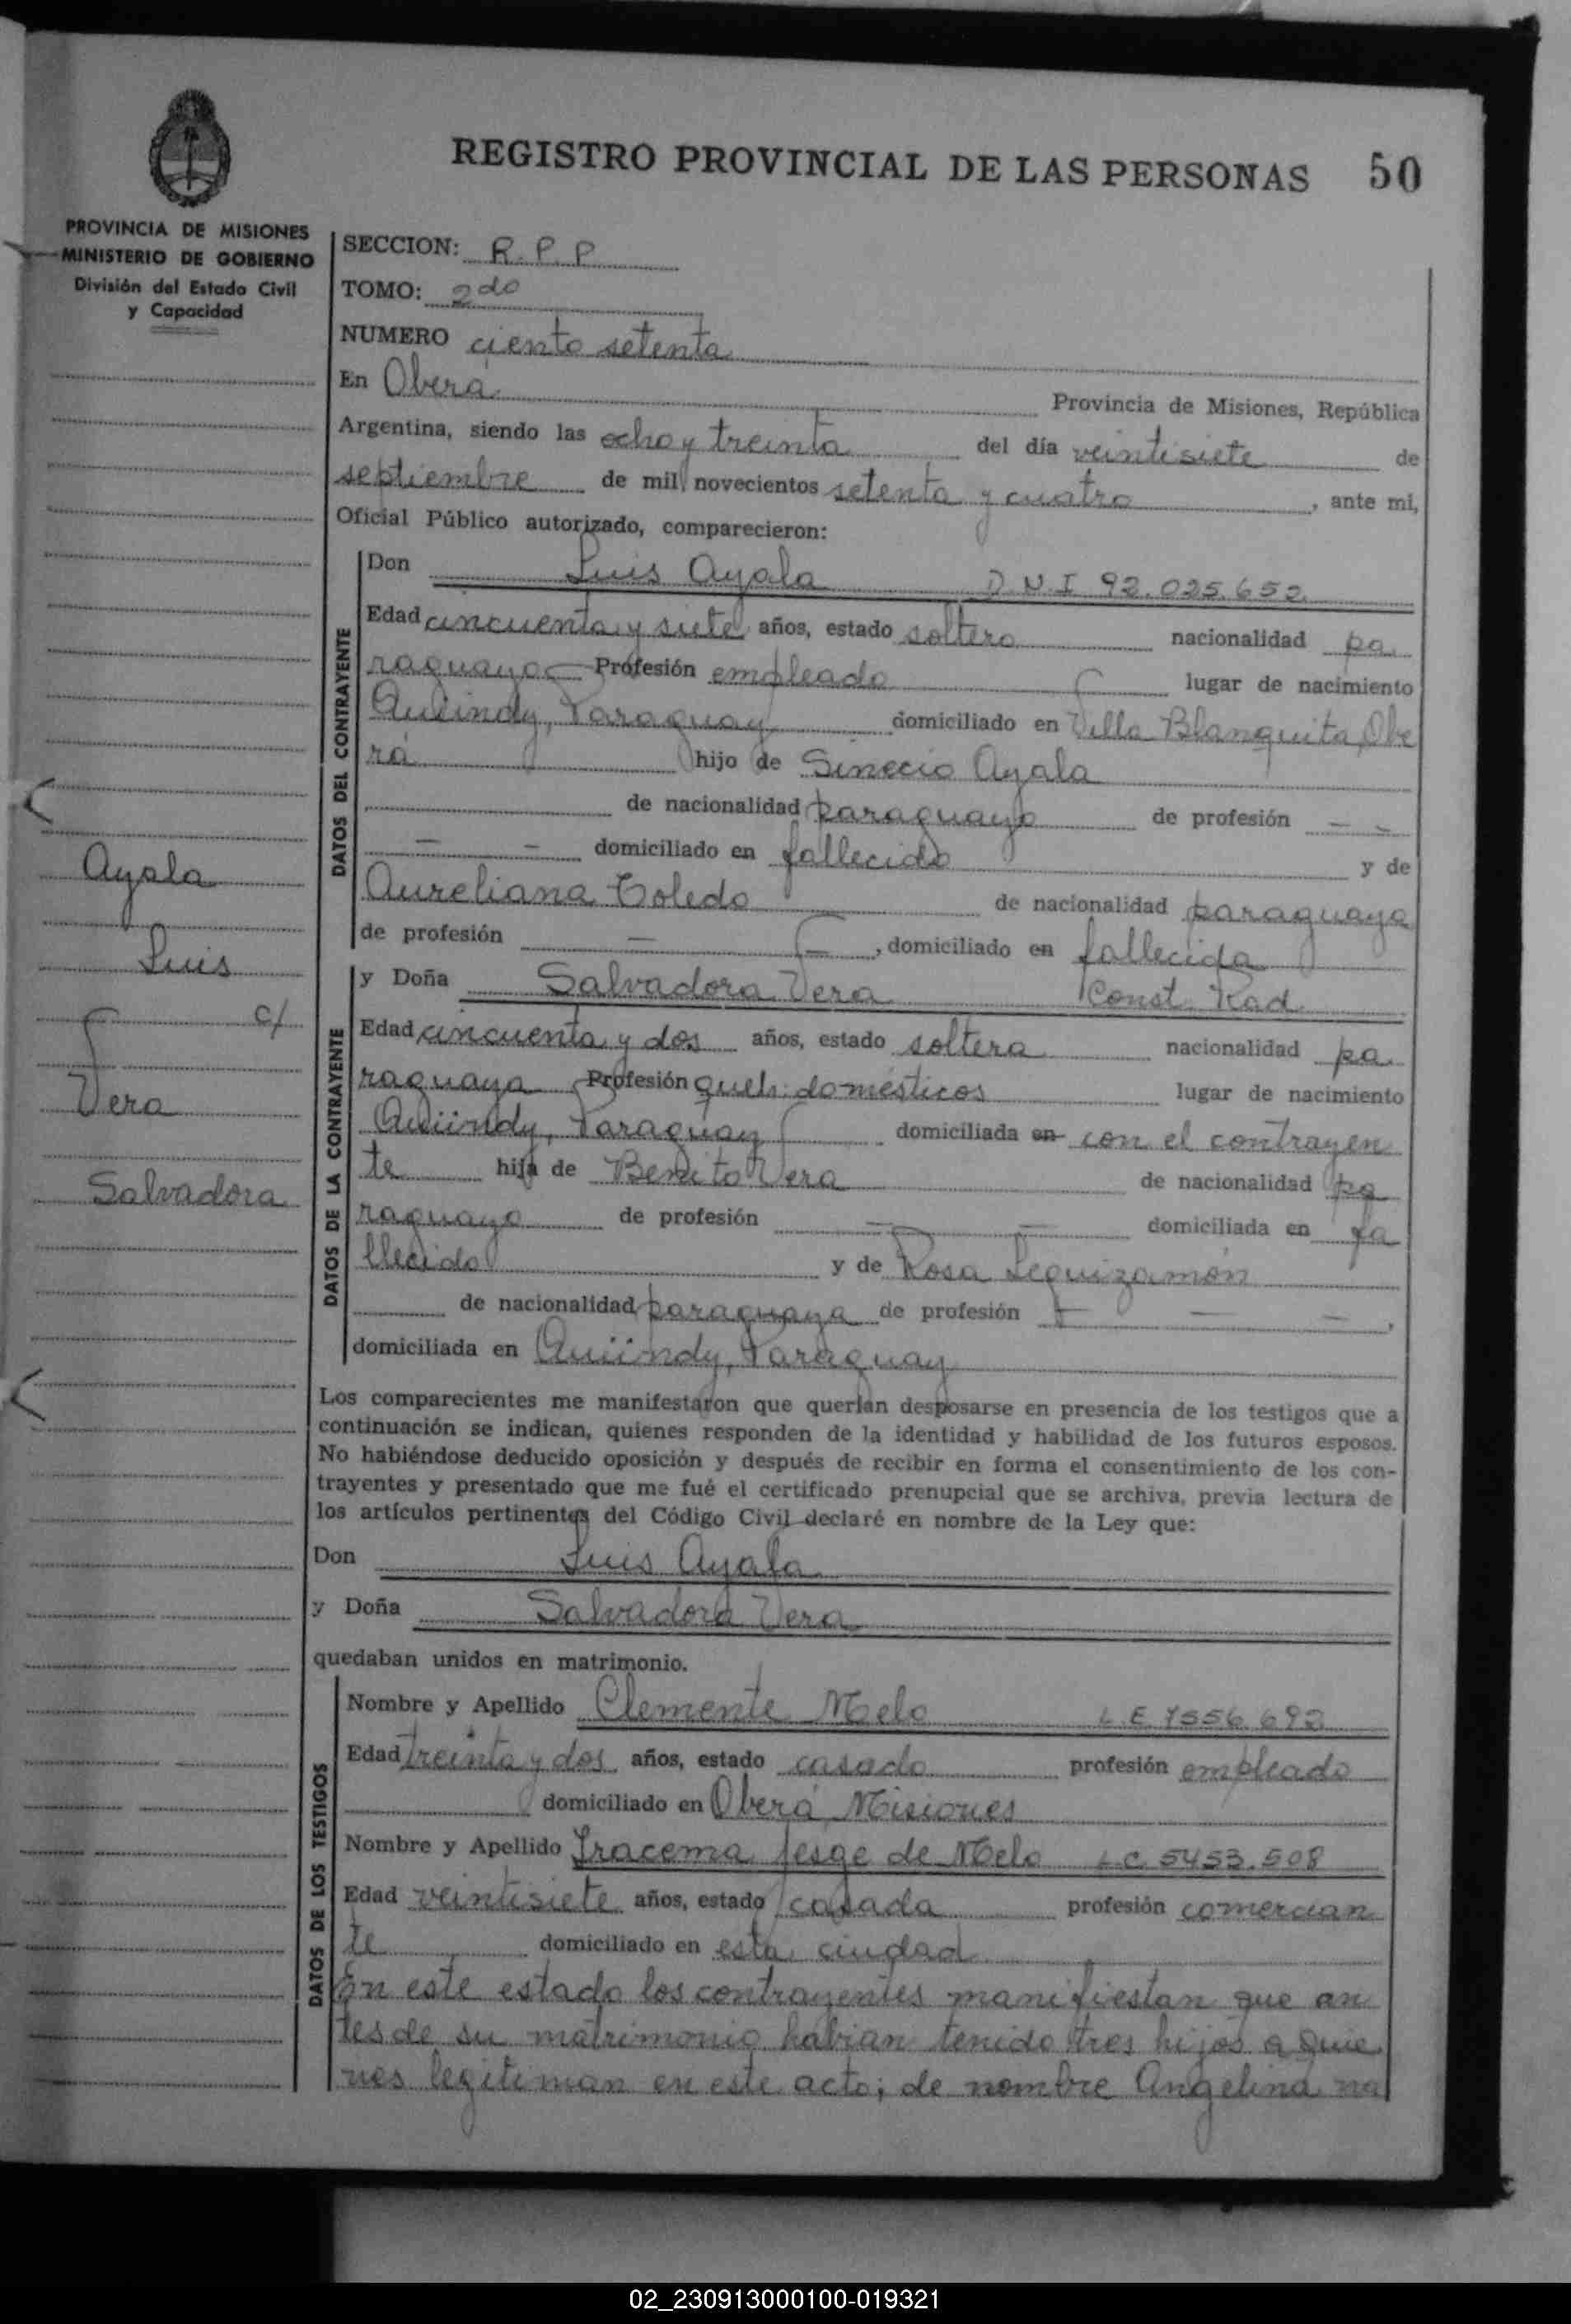 REGISTRO PROVINCIAL DE LAS PERSONAS 50
PROVINCIA DE MISIONES
MINISTERIO DE GOBIERNO
División del Estado Civil
y Capacidad
Ayala
Luis
c/
Vera
Salvadora
SECCION: R.P.P
TOMO: 2do
NUMERO ciento setenta
En Oberá Provincia de Misiones, República
Argentina, siendo las ocho y treinta del día veintisiete de
septiembre de mil novecientos setenta y cuatro, ante mi,
Oficial Público autorizado, comparecieron:
DATOS DEL CONTRAYENTE
Don Luis Ayala D.N.I 92.025.652
Edad cincuenta y siete años, estado soltero nacionalidad pa
raguayo Profesión empleado lugar de nacimiento
Quiindy, Paraguay domiciliado en Villa Blanquita, Obe
rá hijo de Sinecio Ayala
de nacionalidad paraguayo de profesión - -
- - domiciliado en fallecido y de
Aureliana Toledo de nacionalidad paraguaya
de profesión - -, domiciliado en fallecida
DATOS DE LA CONTRAYENTE
y Doña Salvadora Vera Const. Rad
Edad cincuenta y dos años, estado soltera nacionalidad pa
raguaya Profesión queh. domésticos lugar de nacimiento
Quiindy, Paraguay domiciliada en con el contrayen
te hija de Benito Vera de nacionalidad pa
raguayo de profesión - - domiciliada en fa
llecido y de Rosa Leguizamón
de nacionalidad paraguaya de profesión - - -,
domiciliada en Quiindy, Paraguay
Los comparecientes me manifestaron que querían desposarse en presencia de los testigos que a
continuación se indican, quienes responden de la identidad y habilidad de los futuros esposos.
No habiéndose deducido oposición y después de recibir en forma el consentimiento de los con-
trayentes y presentado que me fué el certificado prenupcial que se archiva, previa lectura de
los artículos pertinentes del Código Civil declaré en nombre de la Ley que:
Don Luis Ayala
y Doña Salvadora Vera
quedaban unidos en matrimonio.
DATOS DE LOS TESTIGOS
Nombre y Apellido Clemente Melo L.E 7556.692
Edad treinta y dos años, estado casado profesión empleado
domiciliado en Oberá Misiones
Nombre y Apellido Iracema Jesge de Melo L.C. 5453.508
Edad veintisiete años, estado casada profesión comercian
te domiciliado en esta ciudad
En este estado los contrayentes manifiestan que an
tes de su matrimonio habian tenido tres hijos a quie
nes legitiman en este acto; de nombre Angelina na
02_230913000100-019321